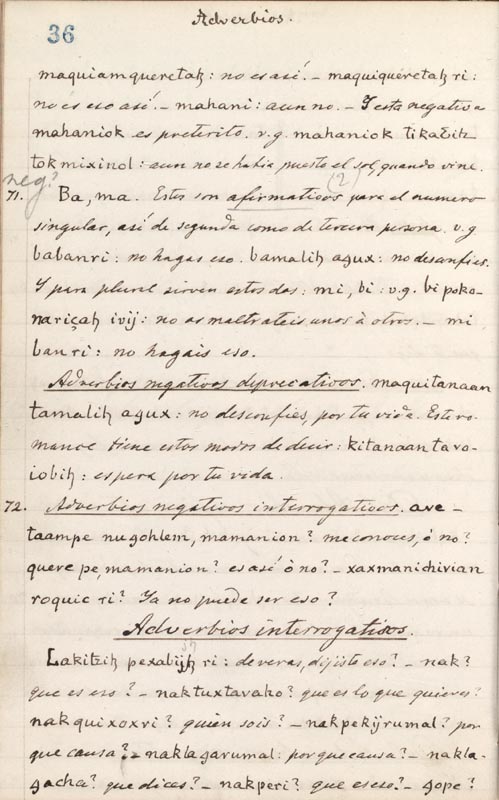 Adverbios.
36
maquiamqueretaꜩ: no es así. – maquiqueretaꜩ ri:
no es eso así. – mahani: aun no. – Y esta negativa
mahaniok es preterito. v.g. mahaniok tikaꜫitz
tok mixinol: aun no se habia puesto el sol, quando vine.
neg?
71. Ba, ma. Estos son afirmativos (2) para el numero
singular, así de segunda como de tercera persona. v.g
babanri: no hagas eso. bamaliꜩ aqux: no desconfies.
Y para plural sirven estos dos: mi, bi: v.g. bi poko-
nariçaꜩ ivij: no os maltrateis unos à otros. – mi
banri: no hagais eso.
Adverbios negativos deprecativos. maquitanaan
tamaliꜩ aqux: no desconfies, por tu vida. Este ro-
mance tiene estos modos de decir: kitanaantava-
iobiꜩ: espera por tu vida.
72. Adverbios negativos interrogativos. ave-
taampe nugohlem, mamanion? me conoces, ó no?
quere pe, mamanion? es así ò no? – xaxmanichivian
roquic ri? Ya no puede ser eso?
Adverbios interrogatisos.
Lakitziꜩ pexabijꜩ ri: de veras, dijiste eso? – nak?
que es eso? – naktuxtavaho? que es lo que quieres?
nakquixoxri? quien sois? – nakpekijrumal? por
que causa? – naklagarumal: por que causa? – nakla-
gacha? que dices? – nakperi? que es eso? – gope?